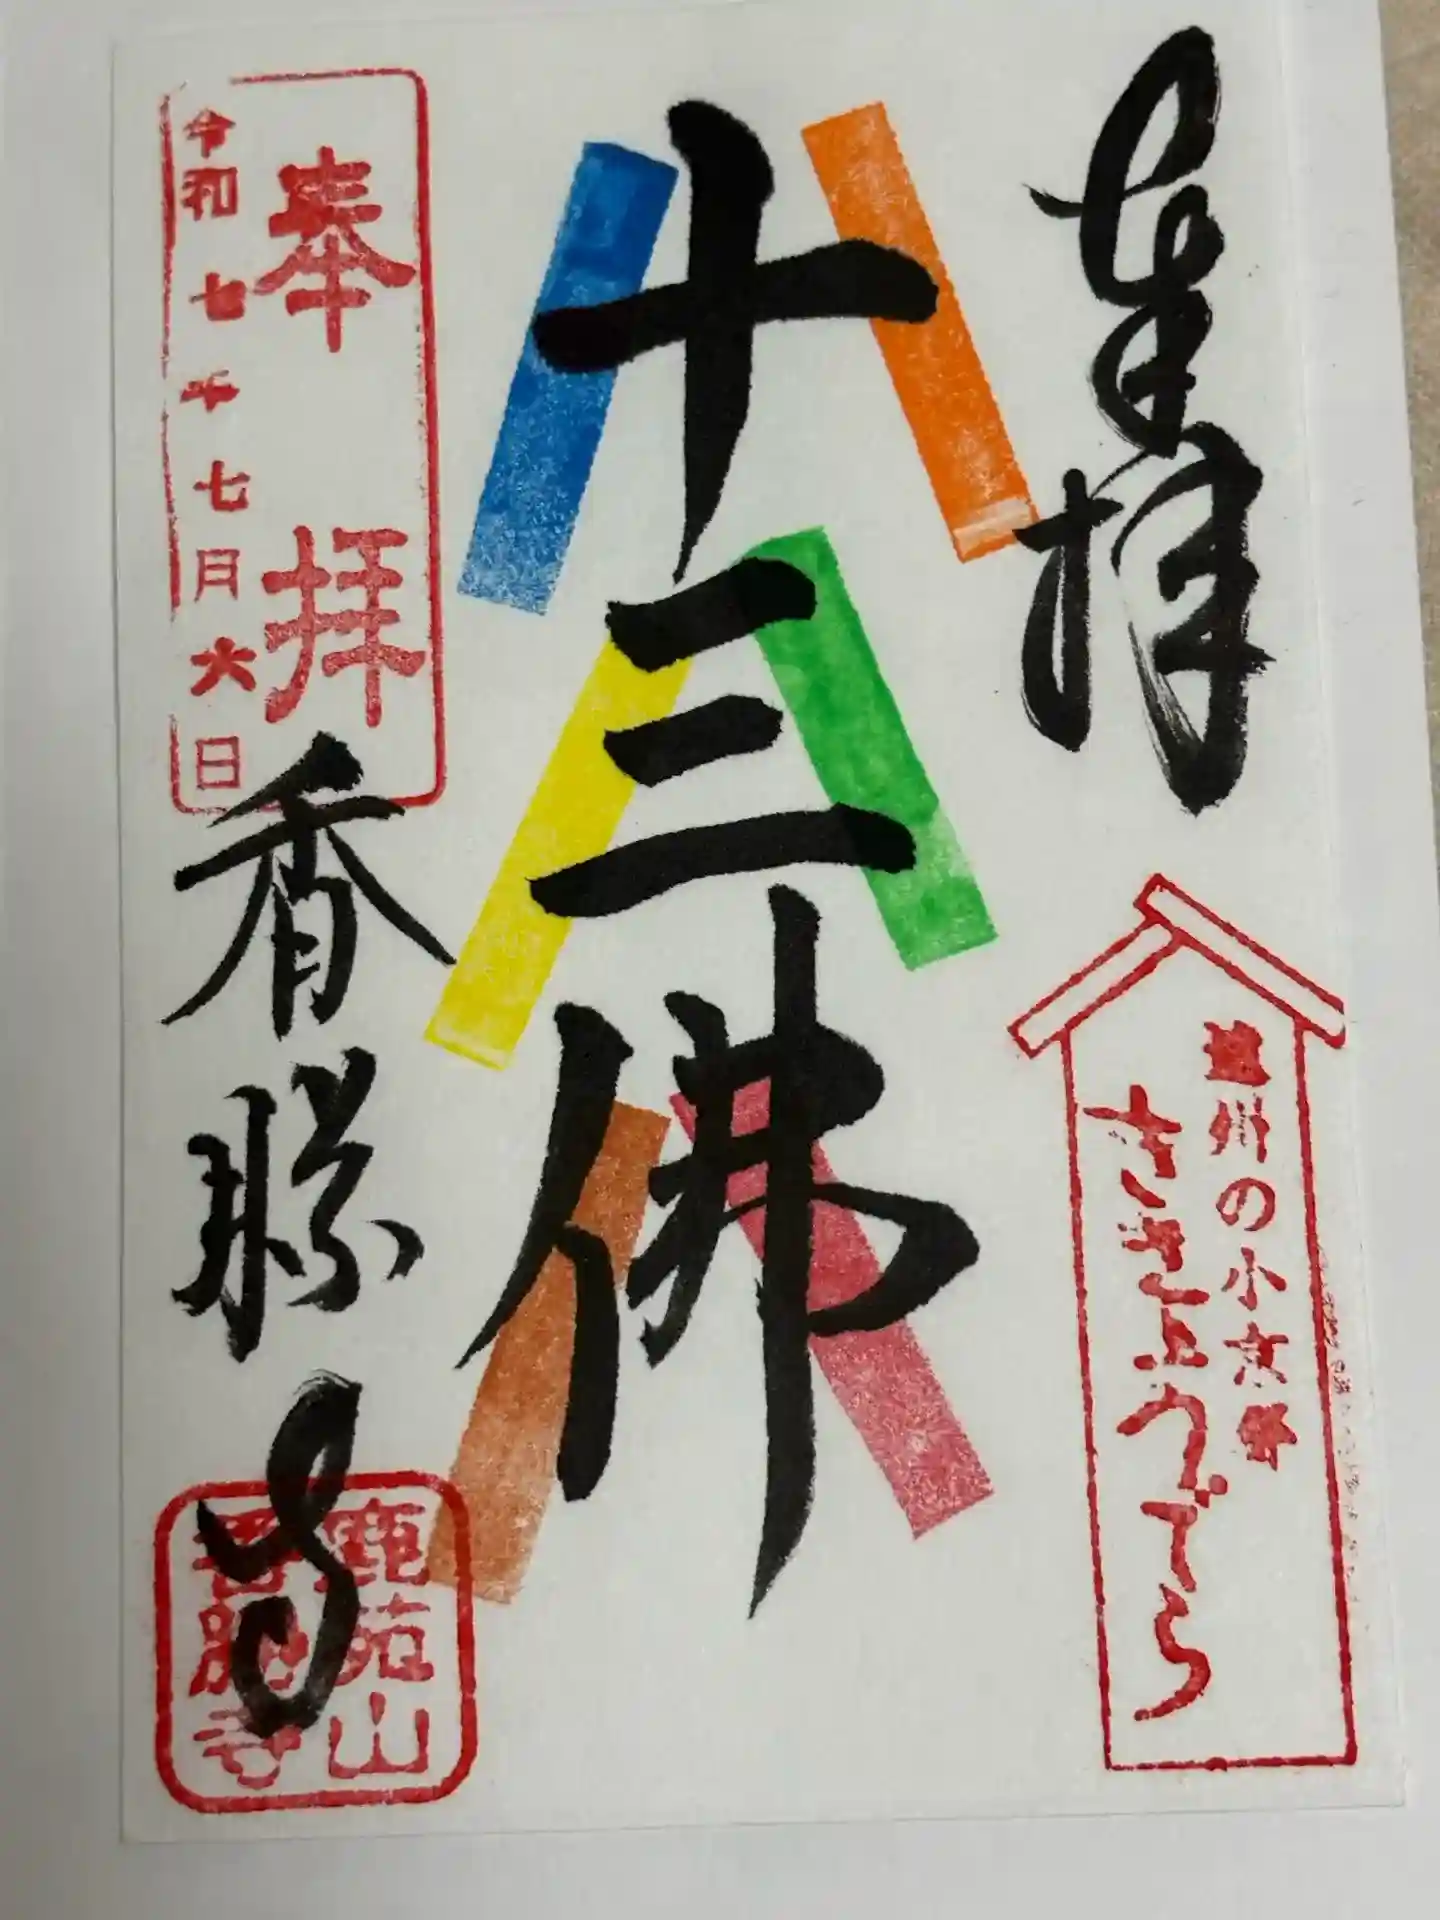 奉拝
遠州の小京都
ききょうでら
十三佛
奉拝
令和七年七月六日
香勝寺
鹿苑山
香勝寺